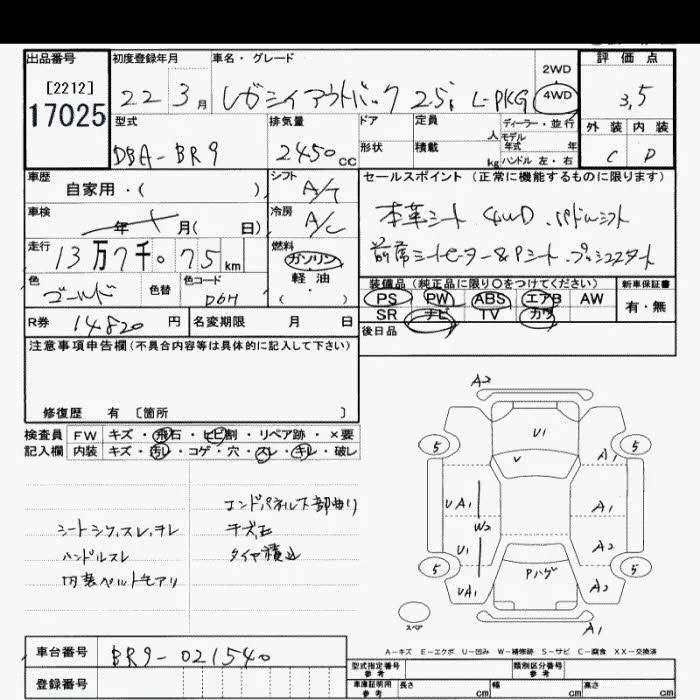 出品番号
[2212]
17025
初度登録年月
22 3月
車名・グレード
レガシィアウトバック 2.5i L-PKG
2WD
4WD
評価点
3,5
外装 内装
C D
型式
DBA-BR9
排気量
2450cc
ドア
形状
定員 人
積載 kg
ディーラー・並行
モデル
年式 年
ハンドル 左・右
車歴
自家用・( )
シフト
A/T
車検
年 月( 日)
冷房
A/C
走行
13万7千075km
燃料
ガソリン
軽油
( )
色
ゴールド
色替
色コード
D6H
R券 14820円
名変期限 月 日
セールスポイント(正常に機能するものに限ります)
本革シート 4WD パドルシフト
前席シートヒーター&Pシート プッシュスタート
装備品(純正品に限り○をつけてください)
PS PW ABS エアB AW
SR ナビ TV カワ
新車保証書
有・無
後日品
注意事項申告欄(不具合内容等は具体的に記入して下さい)
修復歴 有 [箇所 ]
検査員
記入欄
FW キズ・飛石・ヒビ割・リペア跡・×要
内装 キズ・汚レ・コゲ・穴・スレ・キレ・破レ
エンドパネル下部曲り
シートシワ,スレ,チレ
ハンドルスレ
タイヤ積込
内装ベルトモアリ
A2
U1
V
5
5
A1
UA1
A1
W2
U1
A2
5
5
Pハゲ
UA1
A2
スペア
A1
A-キズ E-エクボ U-凹み W-補修跡 S-サビ C-腐食 XX-交換済
車台番号 BR9-021540
登録番号
型式指定番号
参考
類別区分番号
参考
車庫証明用
参考
長さ cm
幅 cm
高さ cm